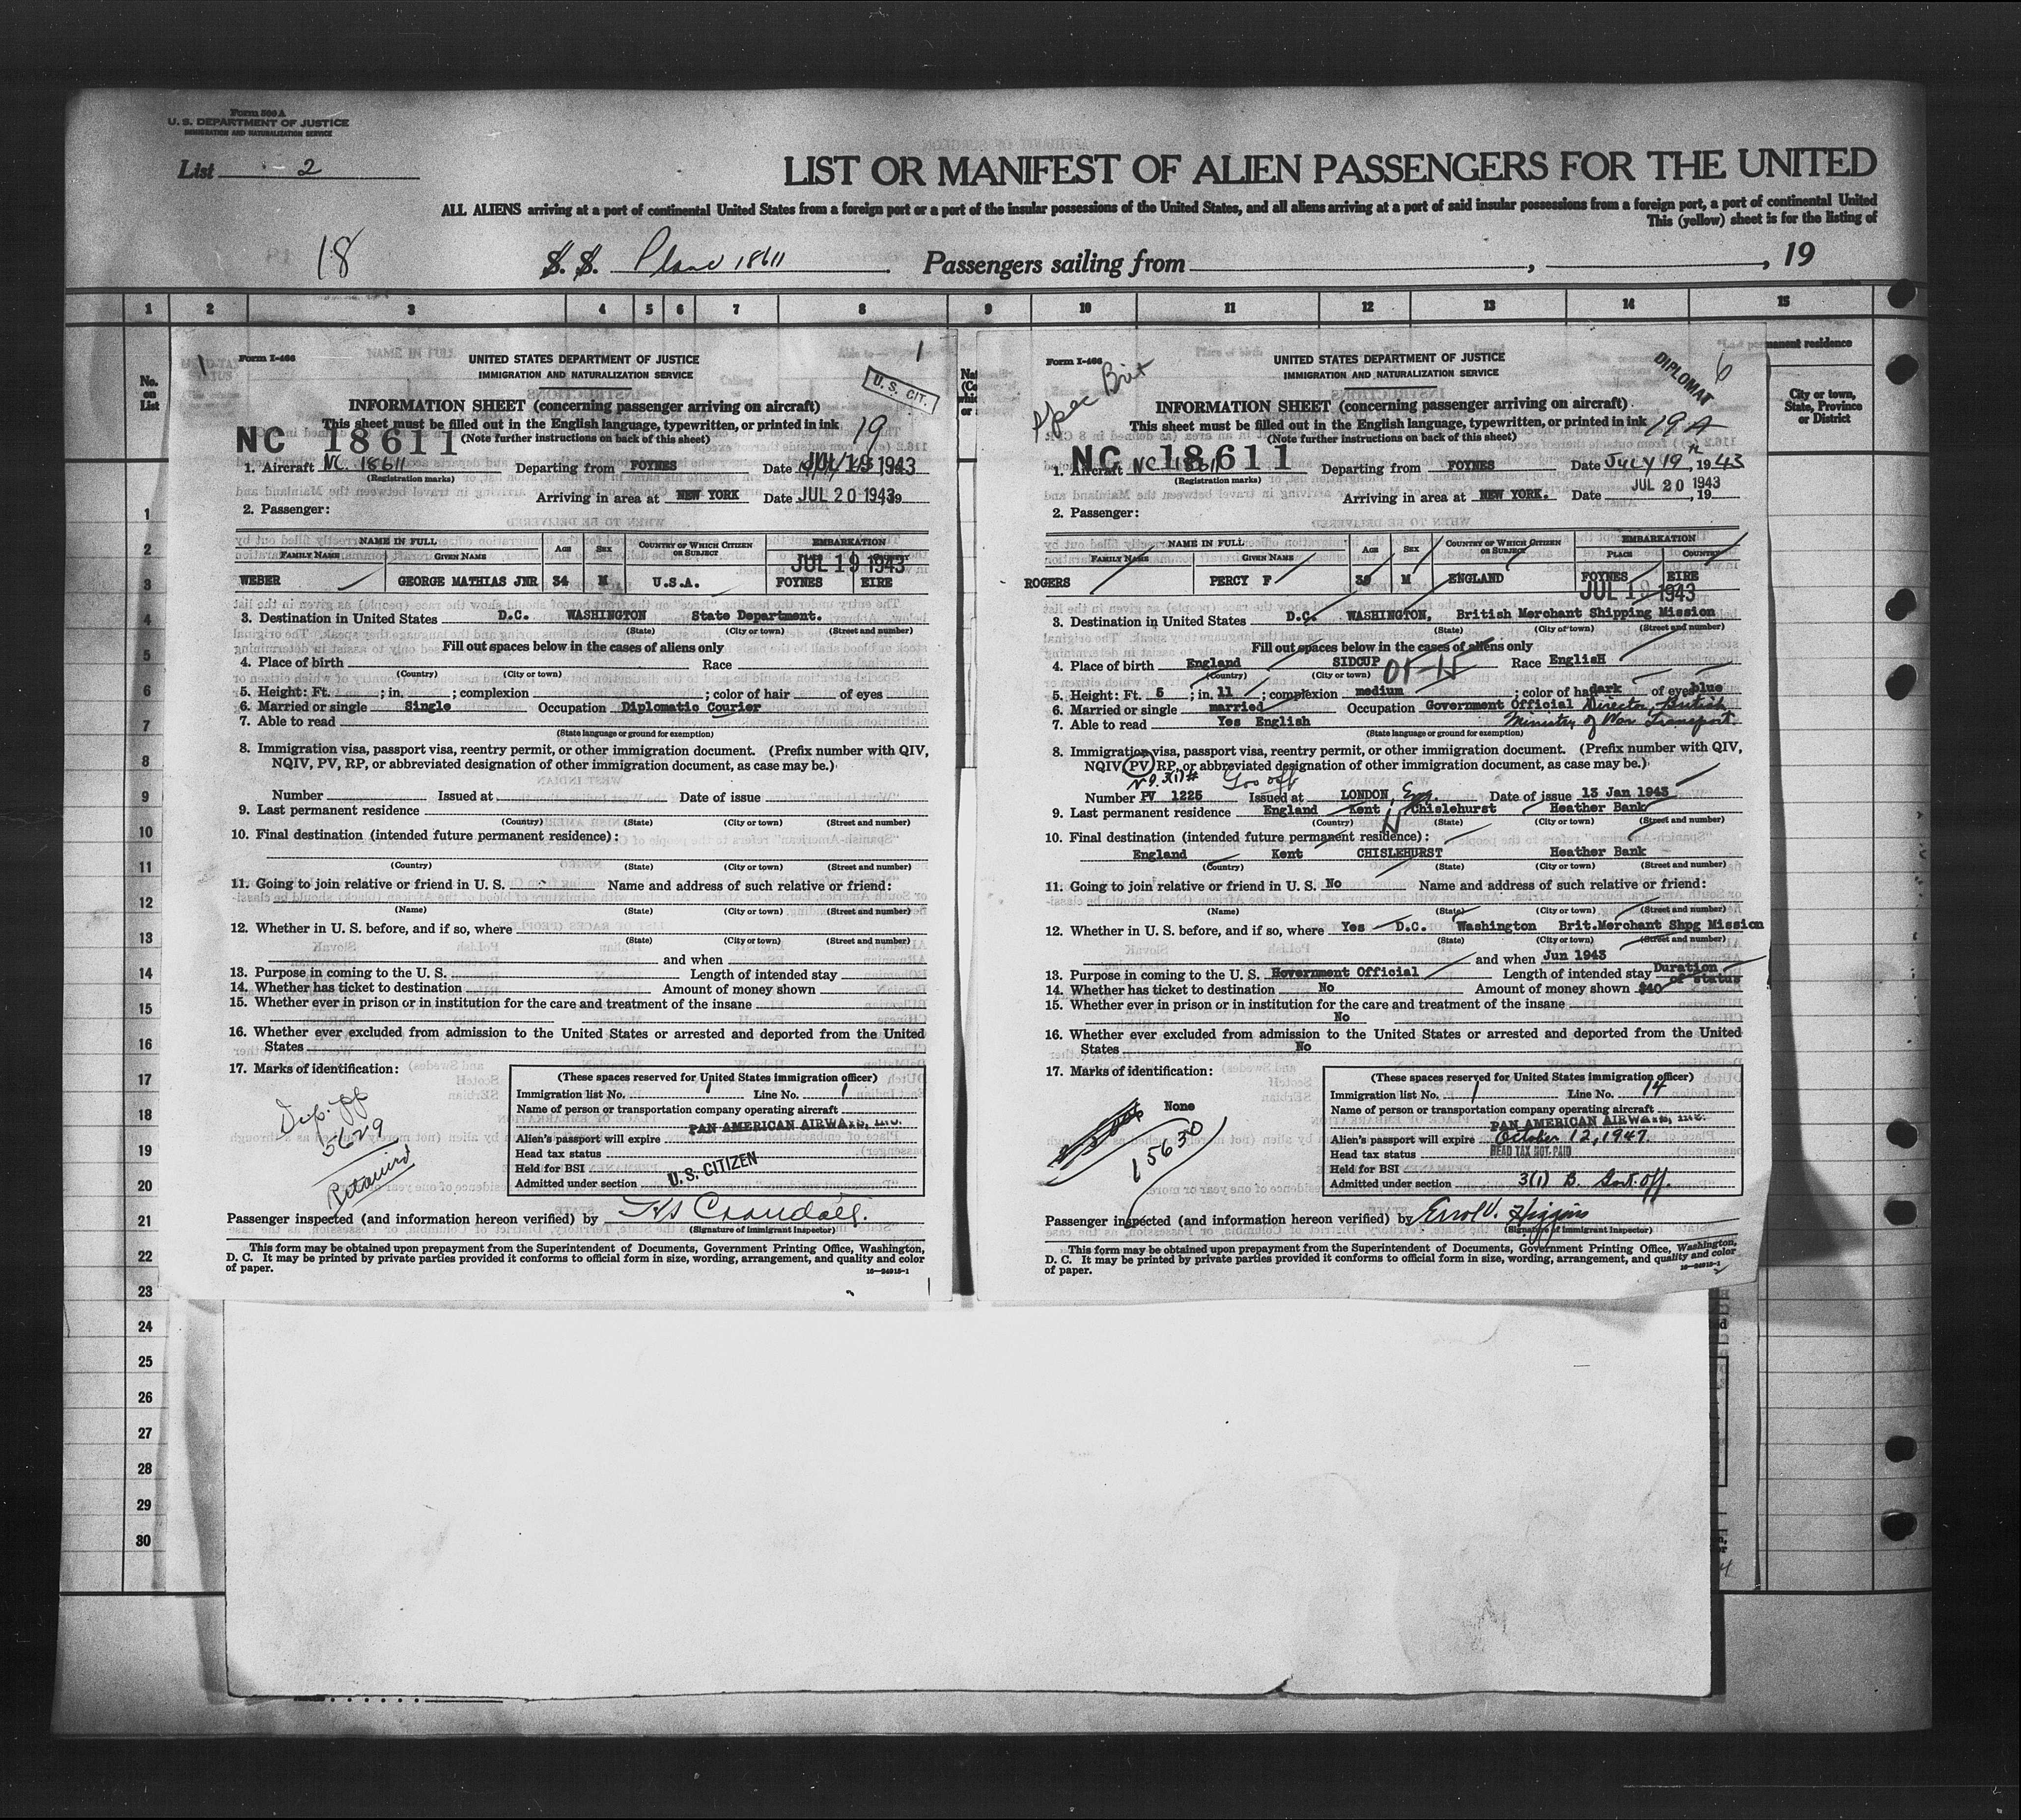 Form 500 A
U. S. DEPARTMENT OF JUSTICE
IMMIGRATION AND NATURALIZATION SERVICE
List 2
LIST OR MANIFEST OF ALIEN PASSENGERS FOR THE UNITED
ALL ALIENS arriving at a port of continental United States from a foreign port or a port of the insular possessions of the United States, and all aliens arriving at a port of said insular possessions from a foreign port, a port of continental United
This (yellow) sheet is for the listing of
18 S. S. Plane 18611 Passengers sailing from , , 19
1 2 3 4 5 6 7 8 9 10 11 12 13 14 15
No. on List
permanent residence
City or town, State, Province or District
1
2
3
4
5
6
7
8
9
10
11
12
13
14
15
16
17
18
19
20
21
22
23
24
25
26
27
28
29
30
1
Form I-466
UNITED STATES DEPARTMENT OF JUSTICE
IMMIGRATION AND NATURALIZATION SERVICE
1
U. S. CIT.
INFORMATION SHEET (concerning passenger arriving on aircraft)
This sheet must be filled out in the English language, typewritten, or printed in ink 19
NC 18611 (Note further instructions on back of this sheet)
1. Aircraft NC. 18611 Departing from FOYNES Date JUL 19 1943
(Registration marks)
Arriving in area at NEW YORK Date JUL 20 1943
2. Passenger:
NAME IN FULL AGE SEX COUNTRY OF WHICH CITIZEN OR SUBJECT EMBARKATION
FAMILY NAME GIVEN NAME PLACE COUNTRY
JUL 19 1943
WEBER GEORGE MATHIAS JNR 34 M U.S.A. FOYNES EIRE
3. Destination in United States D.C. WASHINGTON State Department.
(State) (City or town) (Street and number)
Fill out spaces below in the cases of aliens only
4. Place of birth Race
(Country) (City or town)
5. Height: Ft. ; in. ; complexion ; color of hair of eyes
6. Married or single Single Occupation Diplomatic Courier
7. Able to read
(State language or ground for exemption)
8. Immigration visa, passport visa, reentry permit, or other immigration document. (Prefix number with QIV,
NQIV, PV, RP, or abbreviated designation of other immigration document, as case may be.)
Number Issued at Date of issue
9. Last permanent residence
(Country) (State) (City or town) (Street and number)
10. Final destination (intended future permanent residence):
(Country) (State) (City or town) (Street and number)
11. Going to join relative or friend in U. S. Name and address of such relative or friend:
(Name) (State) (City or town) (Street and number)
12. Whether in U. S. before, and if so, where
(State) (City or town) (Street and number)
and when
13. Purpose in coming to the U. S. Length of intended stay
14. Whether has ticket to destination Amount of money shown
15. Whether ever in prison or in institution for the care and treatment of the insane
16. Whether ever excluded from admission to the United States or arrested and deported from the United
States
17. Marks of identification:
Dip. pp
5629
Retained
(These spaces reserved for United States immigration officer)
Immigration list No. 1 Line No. 1
Name of person or transportation company operating aircraft
PAN AMERICAN AIRWAYS, INC.
Alien's passport will expire
Head tax status
Held for BSI
Admitted under section U. S. CITIZEN
Passenger inspected (and information hereon verified) by Crandall.
(Signature of Immigrant Inspector)
This form may be obtained upon prepayment from the Superintendent of Documents, Government Printing Office, Washington,
D. C. It may be printed by private parties provided it conforms to official form in size, wording, arrangement, and quality and color
of paper. 16—24915-1
Form I-466
Spec Brit
UNITED STATES DEPARTMENT OF JUSTICE
IMMIGRATION AND NATURALIZATION SERVICE
DIPLOMAT 6
INFORMATION SHEET (concerning passenger arriving on aircraft)
This sheet must be filled out in the English language, typewritten, or printed in ink 19 A
(Note further instructions on back of this sheet)
NC 18611
1. Aircraft NC 18611 Departing from FOYNES Date JULY 19th, 1943
(Registration marks)
Arriving in area at NEW YORK. Date JUL 20 1943, 19
2. Passenger:
NAME IN FULL AGE SEX COUNTRY OF WHICH CITIZEN OR SUBJECT EMBARKATION
FAMILY NAME GIVEN NAME PLACE COUNTRY
ROGERS PERCY F 39 M ENGLAND FOYNES EIRE
JUL 19 1943
3. Destination in United States D.C. WASHINGTON, British Merchant Shipping Mission
(State) (City or town) (Street and number)
Fill out spaces below in the cases of aliens only
4. Place of birth England SIDCUP Race EnglisH
(Country) (City or town)
5. Height: Ft. 5 ; in. 11 ; complexion medium ; color of hair dark of eyes blue
6. Married or single married Occupation Government Official Director, British
7. Able to read Yes English Ministry of War Transport.
(State language or ground for exemption)
8. Immigration visa, passport visa, reentry permit, or other immigration document. (Prefix number with QIV,
NQIV, PV, RP, or abbreviated designation of other immigration document, as case may be.)
3(1) Gov off
Number PV 1225 Issued at LONDON, Eng. Date of issue 13 Jan 1943
9. Last permanent residence England Kent Chislehurst Heather Bank
(Country) (State) (City or town) (Street and number)
10. Final destination (intended future permanent residence):
England Kent CHISLEHURST Heather Bank
(Country) (State) (City or town) (Street and number)
11. Going to join relative or friend in U. S. No Name and address of such relative or friend:
(Name) (State) (City or town) (Street and number)
12. Whether in U. S. before, and if so, where Yes D.C. Washington Brit.Merchant Shpg Mission
(State) (City or town) (Street and number)
and when Jun 1943
13. Purpose in coming to the U. S. Hovernment Official Length of intended stay Duration of status
14. Whether has ticket to destination No Amount of money shown $40
15. Whether ever in prison or in institution for the care and treatment of the insane
No
16. Whether ever excluded from admission to the United States or arrested and deported from the United
States No
17. Marks of identification:
None
15630
(These spaces reserved for United States immigration officer)
Immigration list No. 1 Line No. 14
Name of person or transportation company operating aircraft
PAN AMERICAN AIRWAYS, INC.
Alien's passport will expire October 12, 1947.
Head tax status HEAD TAX NOT PAID
Held for BSI
Admitted under section 3(1) B. Govt. off.
Passenger inspected (and information hereon verified) by Errol V. Higgins
(Signature of Immigrant Inspector)
This form may be obtained upon prepayment from the Superintendent of Documents, Government Printing Office, Washington,
D. C. It may be printed by private parties provided it conforms to official form in size, wording, arrangement, and quality and color
of paper. 16—24915-1